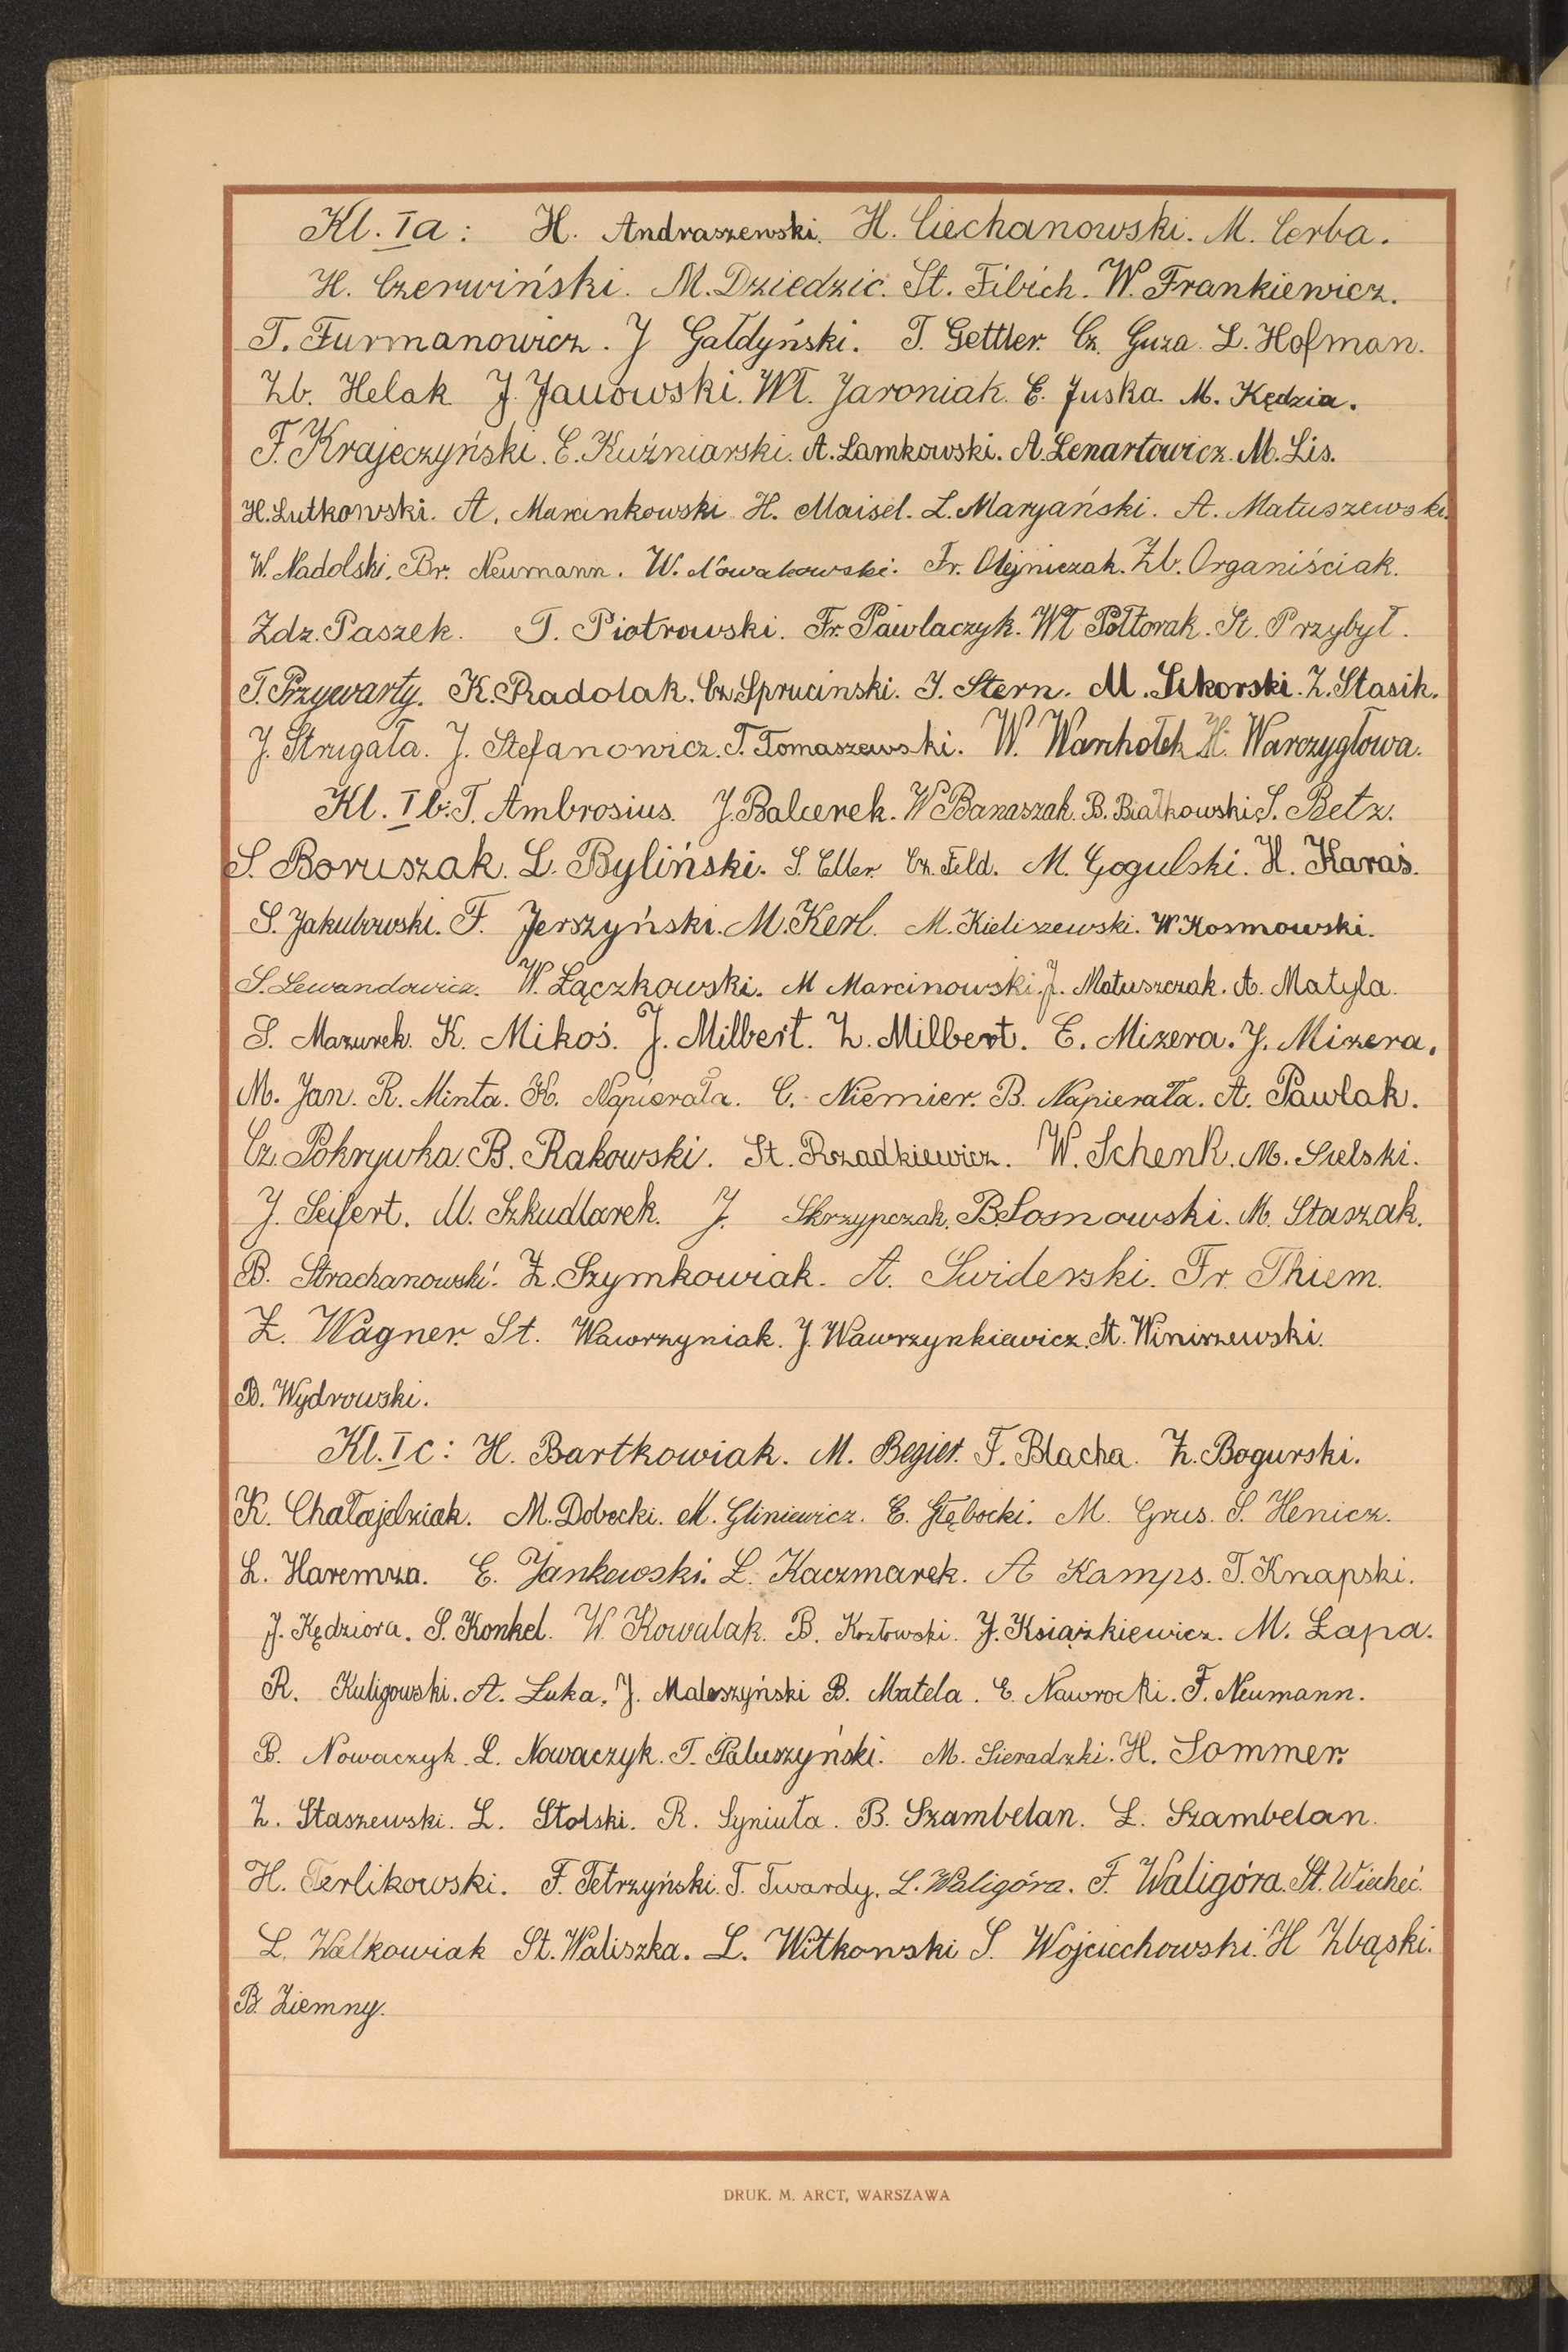 Kl. Ia: H. Andraszewski. H. Ciechanowski. M. Cerba.
H. Czerwiński. M. Dziedzic. St. Fibich. W. Frankiewicz.
T. Furmanowicz. J Gałdyński. T. Gettler. Cz. Guza. L. Hofman.
Zb. Helak J. Janowski. Wł. Jaroniak. E. Juska. M. Kędzia.
F. Krajeczyński. E. Kuźniarski. A. Lamkowski. A. Lenartowicz. M. Lis.
H. Lutkowski. A. Marcinkowski H. Maisel. L. Maryański. A. Matuszewski.
W. Nadolski. Br. Neumann. W. Nowakowski. Fr. Olejniczak. Zb. Organiściak.
Zdz. Paszek. T. Piotrowski. Fr. Pawlaczyk. Wł Półtorak. St. Przybył.
T. Przywarty. K. Radolak. Cz. Sprucinski. J. Stern. M. Sikorski. Z. Stasik.
J. Strugała. J. Stefanowicz. T. Tomaszewski. W. Warchołek H. Warczygłowa.
Kl. Ib: T. Ambrosius. J. Balcerek. W Banaszak. B. Białkowski. S. Betz.
S. Boruszak. L. Byliński. S. Eller. Cz. Feld. M. Gogulski. H. Karaś.
S. Jakubowski. F. Jerszyński. M. Kerl. M. Kieliszewski. W Kosmowski.
S. Lewandowicz. W. Łączkowski. M Marcinowski. J. Matuszczak. A. Matyla.
S. Mazurek. K. Mikoś. J. Milbert. Z. Milbert. E. Mizera. J. Mizera.
M. Jan. R. Minta. K. Napierała. C. Niemier. B. Napierała. A. Pawlak.
Cz. Pokrywka. B. Rakowski. St. Rzadkiewicz. W. Schenk. M. Sielski.
J. Seifert. M. Szkudlarek. J. Skrzypczak. B. Sosnowski. M. Staszak.
B. Strachanowski. Z. Szymkowiak. A. Świderski. Fr. Thiem.
Z. Wagner. St. Wawrzyniak. J. Wawrzynkiewicz. St. Winiszewski.
B. Wydrowski.
Kl. Ic: H. Bartkowiak. M. Begier. F. Blacha. Z. Bogurski.
K. Chałajdziak. M. Dobecki. M. Gliniewicz. E. Głębocki. M. Grus. S. Henicz.
L. Haremza. E. Jankowski. L. Kaczmarek. A Kamps. T. Knapski.
J. Kędziora. S. Konkel. W. Kowalak. B. Kozłowski. J. Książkiewicz. M. Łapa.
R. Kuligowski. A. Luka. J. Maleszyński B. Matela. E. Nawrocki. F. Neumann.
B. Nowaczyk. L. Nowaczyk. T. Paluszyński. M. Sieradzki. H. Sommer.
Z. Staszewski. L. Stolski. R. Syniuła. B. Szambelan. L. Szambelan.
H. Terlikowski. F. Tetrzyński. T. Twardy. L. Waligóra. F. Waligóra. St. Wiecheć.
L. Walkowiak St. Waliszka. L. Witkowski S. Wojciechowski. H Zbąski.
B. Ziemny.
DRUK. M. ARCT, WARSZAWA